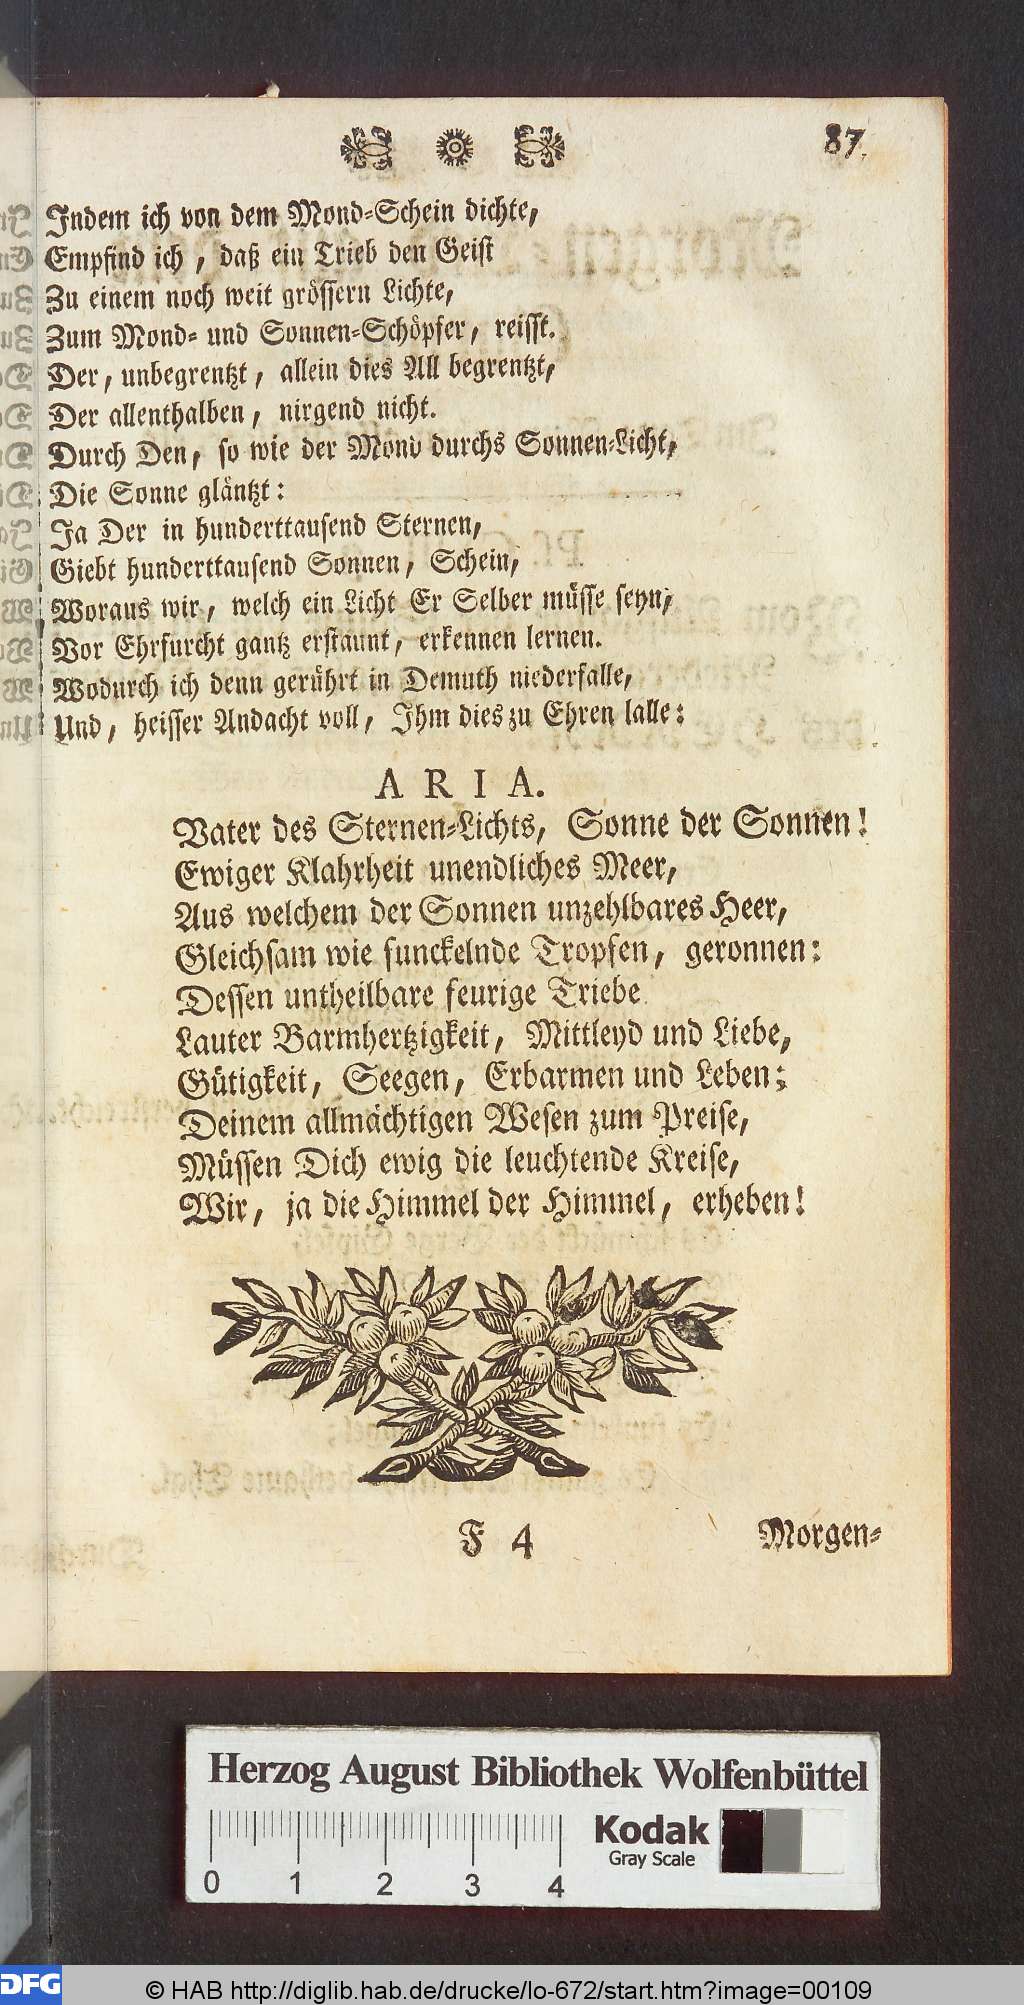 87.
Indem ich von dem Mond-Schein dichte,
Empfind ich, daß ein Trieb den Geist
Zu einem noch weit grössern Lichte,
Zum Mond- und Sonnen-Schöpfer, reisst.
Der, unbegrentzt, allein dies All begrentzt,
Der allenthalben, nirgend nicht.
Durch Den, so wie der Mond durchs Sonnen-Licht,
Die Sonne gläntzt:
Ja Der in hunderttausend Sternen,
Giebt hunderttausend Sonnen, Schein,
Woraus wir, welch ein Licht Er Selber müsse seyn,
Vor Ehrfurcht gantz erstaunt, erkennen lernen.
Wodurch ich denn gerührt in Demuth niederfalle,
Und, heisser Andacht voll, Ihm dies zu Ehren lalle:
ARIA.
Vater des Sternen-Lichts, Sonne der Sonnen!
Ewiger Klahrheit unendliches Meer,
Aus welchem der Sonnen unzehlbares Heer,
Gleichsam wie funckelnde Tropfen, geronnen:
Dessen untheilbare feurige Triebe
Lauter Barmhertzigkeit, Mittleyd und Liebe,
Gütigkeit, Seegen, Erbarmen und Leben;
Deinem allmächtigen Wesen zum Preise,
Müssen Dich ewig die leuchtende Kreise,
Wir, ja die Himmel der Himmel, erheben!
F 4 Morgen-
Herzog August Bibliothek Wolfenbüttel
Kodak
Gray Scale
0 1 2 3 4
DFG © HAB http://diglib.hab.de/drucke/lo-672/start.htm?image=00109